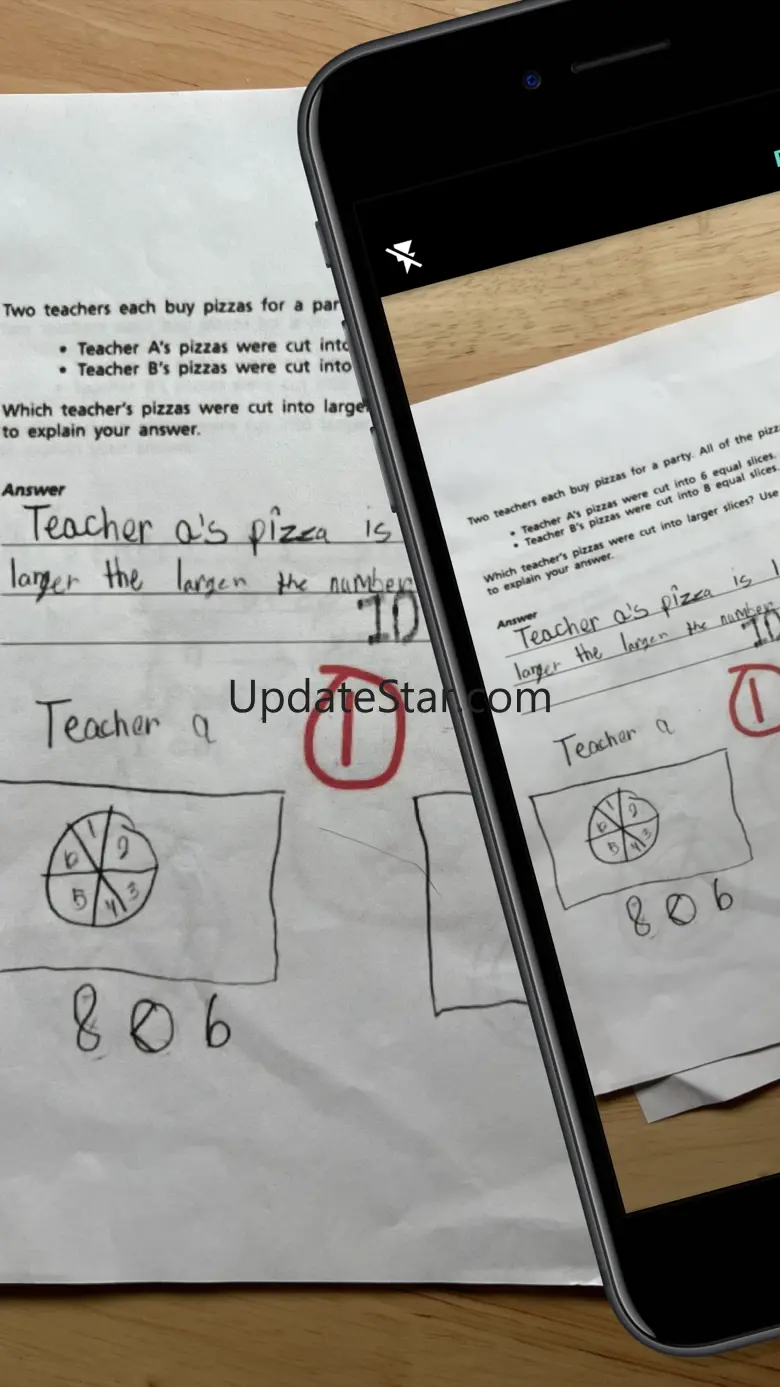 Two teachers each buy pizzas for a par
• Teacher A's pizzas were cut into
• Teacher B's pizzas were cut into
Which teacher's pizzas were cut into large
to explain your answer.
Answer
Teacher a's pizza is
larger the larger the number
ID
Teacher a
1
1 2 3 4 5 6
8 0 6
UpdateStar.com
Two teachers each buy pizzas for a party. All of the pizz
• Teacher A's pizzas were cut into 6 equal slices.
• Teacher B's pizzas were cut into 8 equal slices.
Which teacher's pizzas were cut into larger slices? Use
to explain your answer.
Answer
Teacher a's pizza is l
larger the larger the number
ID
Teacher a
1
1 2 3 4 5 6
8 0 6